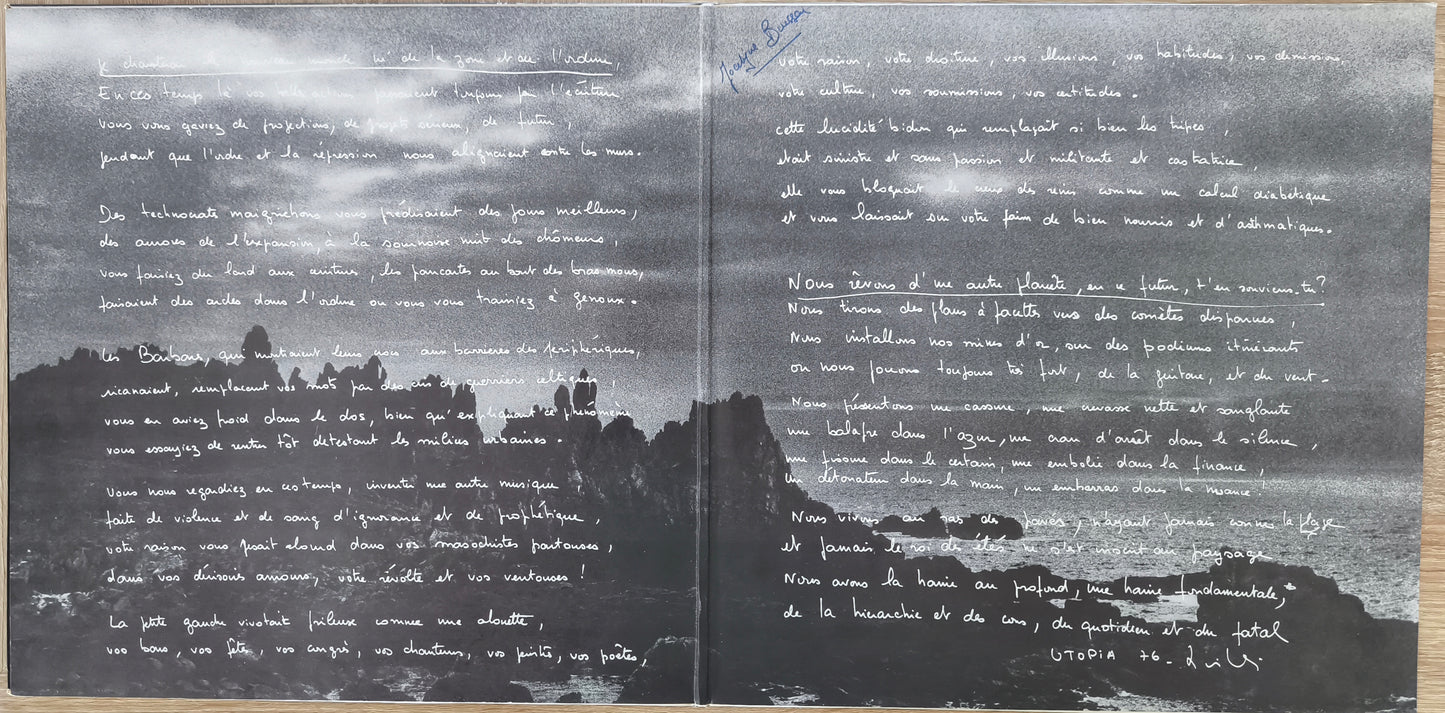 Je chanterai le nouveau monde né de la zone et de l'ordure,
En ces temps là vos belles actions passaient toujours par l'écriture
vous vous gaviez de projections, de projets sérieux, de futur,
pendant que l'ordre et la répression nous alignaient contre les murs.
Des technocrates maigrichons vous prédisaient des jours meilleurs,
des aurores de l'expansion, à la sournoise nuit des chômeurs,
vous faisiez du lard aux ceintures, les pancartes au bout des bras mous,
faisaient des arcles dans l'ordure ou vous vous traîniez à genoux.
Les Barbares, qui montraient leurs crocs aux barrières des périphériques,
ricanaient, remplacent vos mots par des cris de guerriers celtiques,
vous en aviez froid dans le dos, bien qu'expliquant ce phénomène
vous essayiez de rentrer tôt détestant les milices urbaines.
Vous nous regardiez en ces temps, inventer une autre musique
faite de violence et de sang d'ignorance et de prophétique,
votre raison vous pesait lourd dans vos masochistes partouses,
dans vos dérisoires amours, votre révolte et vos ventouses !
La petite gauche vivotait frileuse comme une alouette,
vos bars, vos fêtes, vos congrès, vos chanteurs, vos peintres, vos poètes,
Jocelyne
votre raison, votre droiture, vos illusions, vos habitudes, vos démissions,
votre culture, vos soumissions, vos certitudes.
cette lucidité bidon qui remplaçait si bien les tripes,
était sinistre et sans passion et militante et castratrice,
elle vous bloquait le creux des reins comme un calcul diabétique
et vous laissait sur votre faim de bien nourris et d'asthmatiques.
Nous rêvons d'une autre planète, en ce futur, t'en souviens-tu ?
Nous tirons des plans à facettes vers des comètes disparues,
Nous installons nos mines d'or, sur des podiums itinérants
ou nous jouons toujours très fort, de la guitare, et du vent -
Nous présentons une cassure, une crevasse nette et sanglante
une balafre dans l'azur, un cran d'arrêt dans le silence,
une fissure dans le certain, une embolie dans la finance,
un détonateur dans la main, un embarras dans la nuance !
Nous vivons au ras des pavés, n'ayant jamais connu la plage
et jamais le roi des étés ne s'est inscrit au paysage
Nous avons la haine au profond, une haine fondamentale,
de la hiérarchie et des cons, du quotidien et du fatal
UTOPIA 76 -